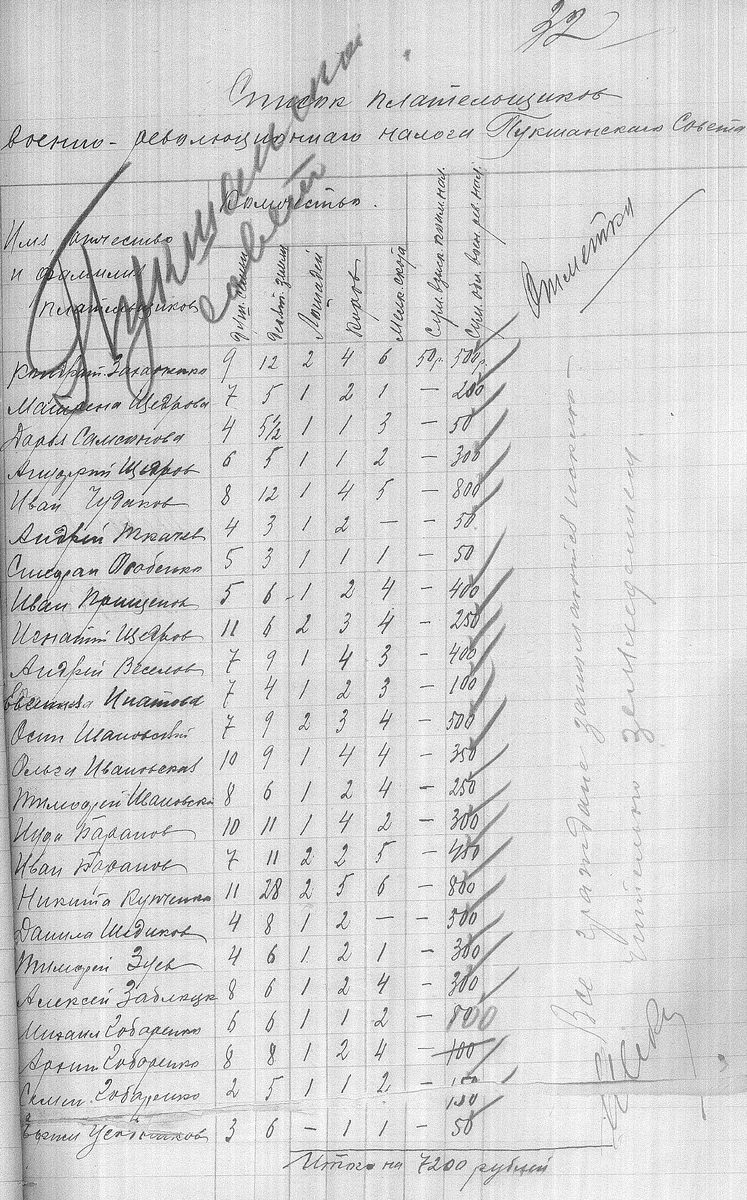 32
Список плательщиков
военно-революционнаго налога Пукшанскаго Совета
Пукшанского
совет
Имя, отчество
и фамилия
плательщиков
Количество.
душ семьи
десят. земли
Лошадей
Коров
Мелк. скота
Сум. обл. воен. рев. нал.
Отметка
Захаренко 9 12 2 4 6 50р. 500р.
Матрена Щедрова 7 5 1 2 1 — 200
Дарья Самсонова 4 5½ 1 1 3 — 50
Щедров 6 5 1 1 2 — 300
Иван Чудаков 8 12 1 4 5 — 800
Андрей Ткачев 4 3 1 2 — — 50
5 3 1 1 1 — 50
Иван Прищепов 5 6 1 2 4 — 400
Игнатий Щедров 11 6 2 3 4 — 250
Андрей Веселов 7 9 1 4 3 — 400
Игнатова 7 4 1 2 3 — 100
Осип 7 9 2 3 4 — 500
Ольга Ивановская 10 9 1 4 4 — 350
Тимофей Ивановский 8 6 1 2 4 — 250
Баранов 10 11 1 4 2 — 300
Иван Баранов 7 11 2 2 5 — 450
Никита Купченко 11 28 2 5 6 — 800
Данила Шедиков 4 8 1 2 — — 500
Тимофей Зуев 4 6 1 2 1 — 300
Алексей 8 6 1 2 4 — 300
Михаил Гобаренко 6 6 1 1 2 —
Гобаренко 8 8 1 2 4 — 100
Гобаренко 2 5 1 1 2 —
100
3 6 — 1 1 — 50
Итого на 7200 рублей
Все граждане занимаются исклю-
чительно земледелием